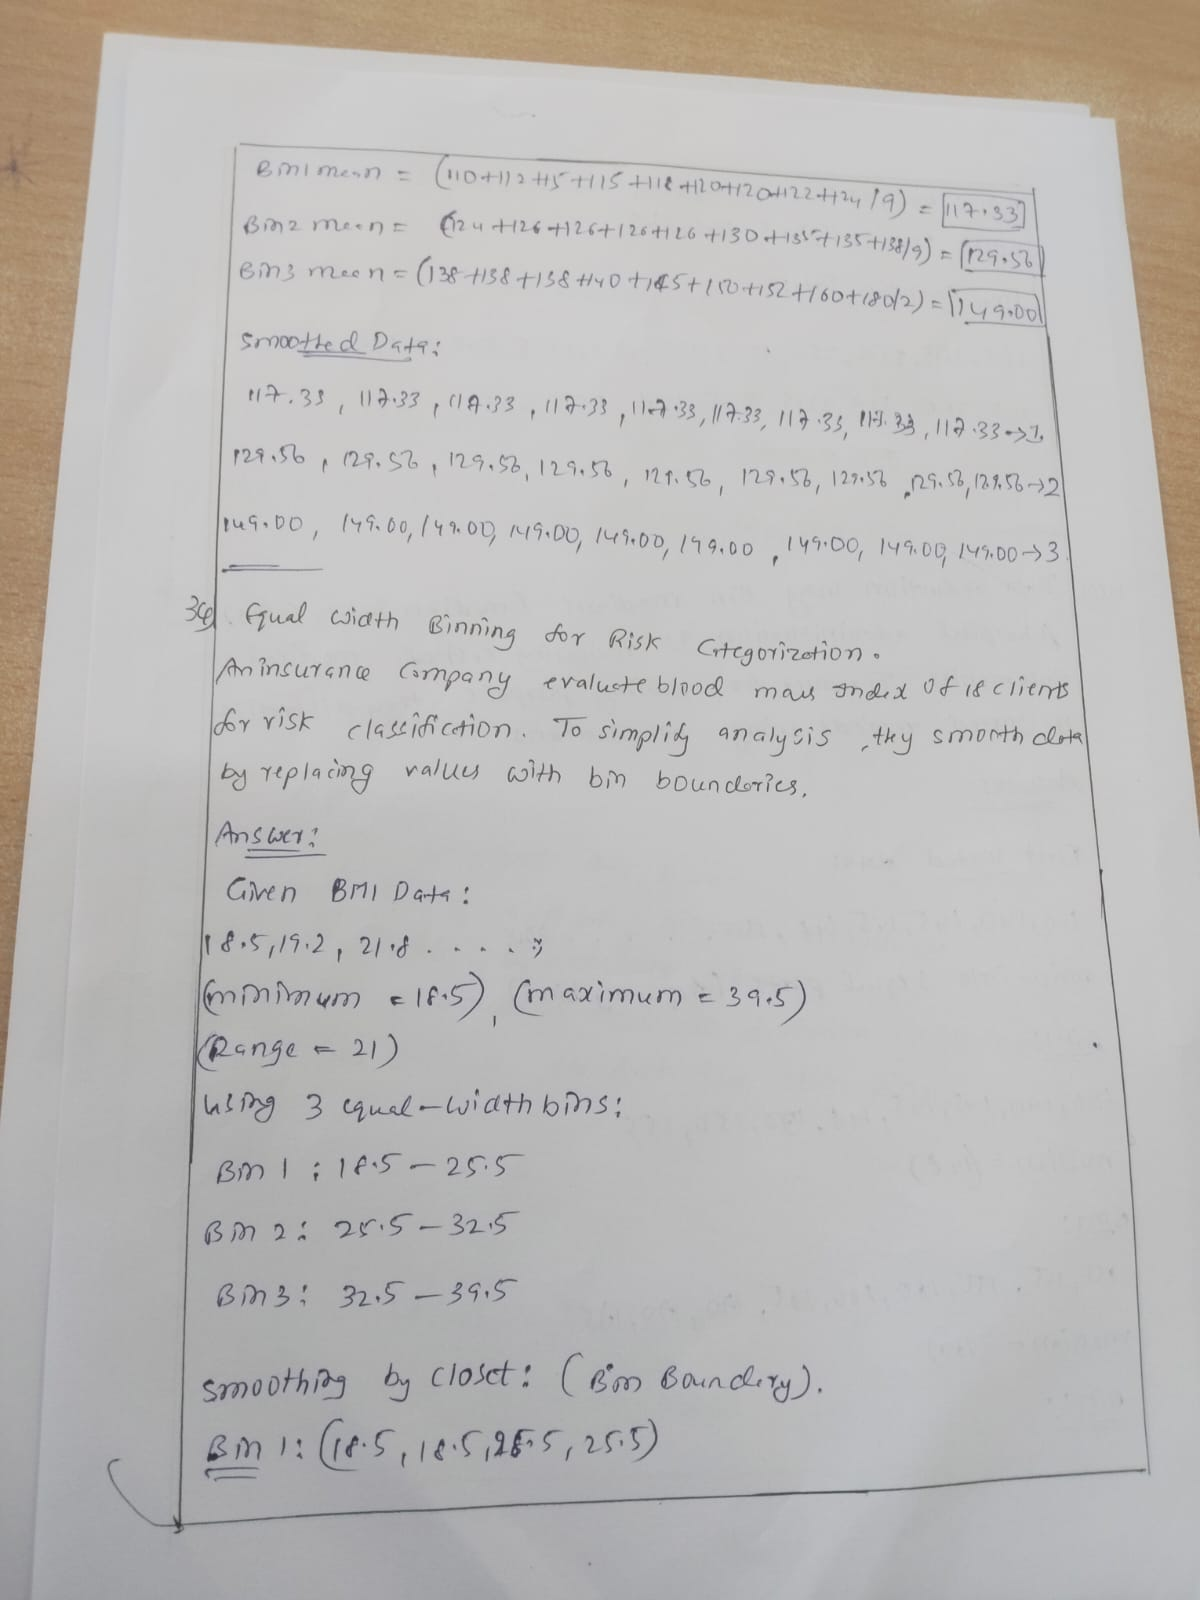 Bin1 mean = (110+112+15+115+118+120+120+122+124/9) = 117.33
Bin2 mean = (124+126+126+126+126+130+135+135+138/9) = 129.56
Bin3 meen = (138+138+138+140+145+150+152+160+180/2) = 149.00
Smoothed Data:
117.33, 117.33, 117.33, 117.33, 117.33, 117.33, 117.33, 117.33, 117.33→1.
129.56, 129.56, 129.56, 129.56, 129.56, 129.56, 129.56, 129.56, 129.56→2
149.00, 149.00, 149.00, 149.00, 149.00, 149.00, 149.00, 149.00, 149.00→3.
Equal width Binning for Risk Categorization.
An insurance Company evaluate blood mass Index of 18 clients
for risk classification. To simplify analysis, they smooth data
by replacing values with bin boundaries.
Answer:
Given BMI Data:
18.5, 19.2, 21.8 . . . . ;
(minimum = 18.5), (maximum = 39.5)
(Range = 21)
using 3 equal-width bins:
Bin 1: 18.5 – 25.5
Bin 2: 25.5 – 32.5
Bin 3: 32.5 – 39.5
smoothing by closet: (Bin Boundary).
Bin 1: (18.5, 18.5, 25.5, 25.5)